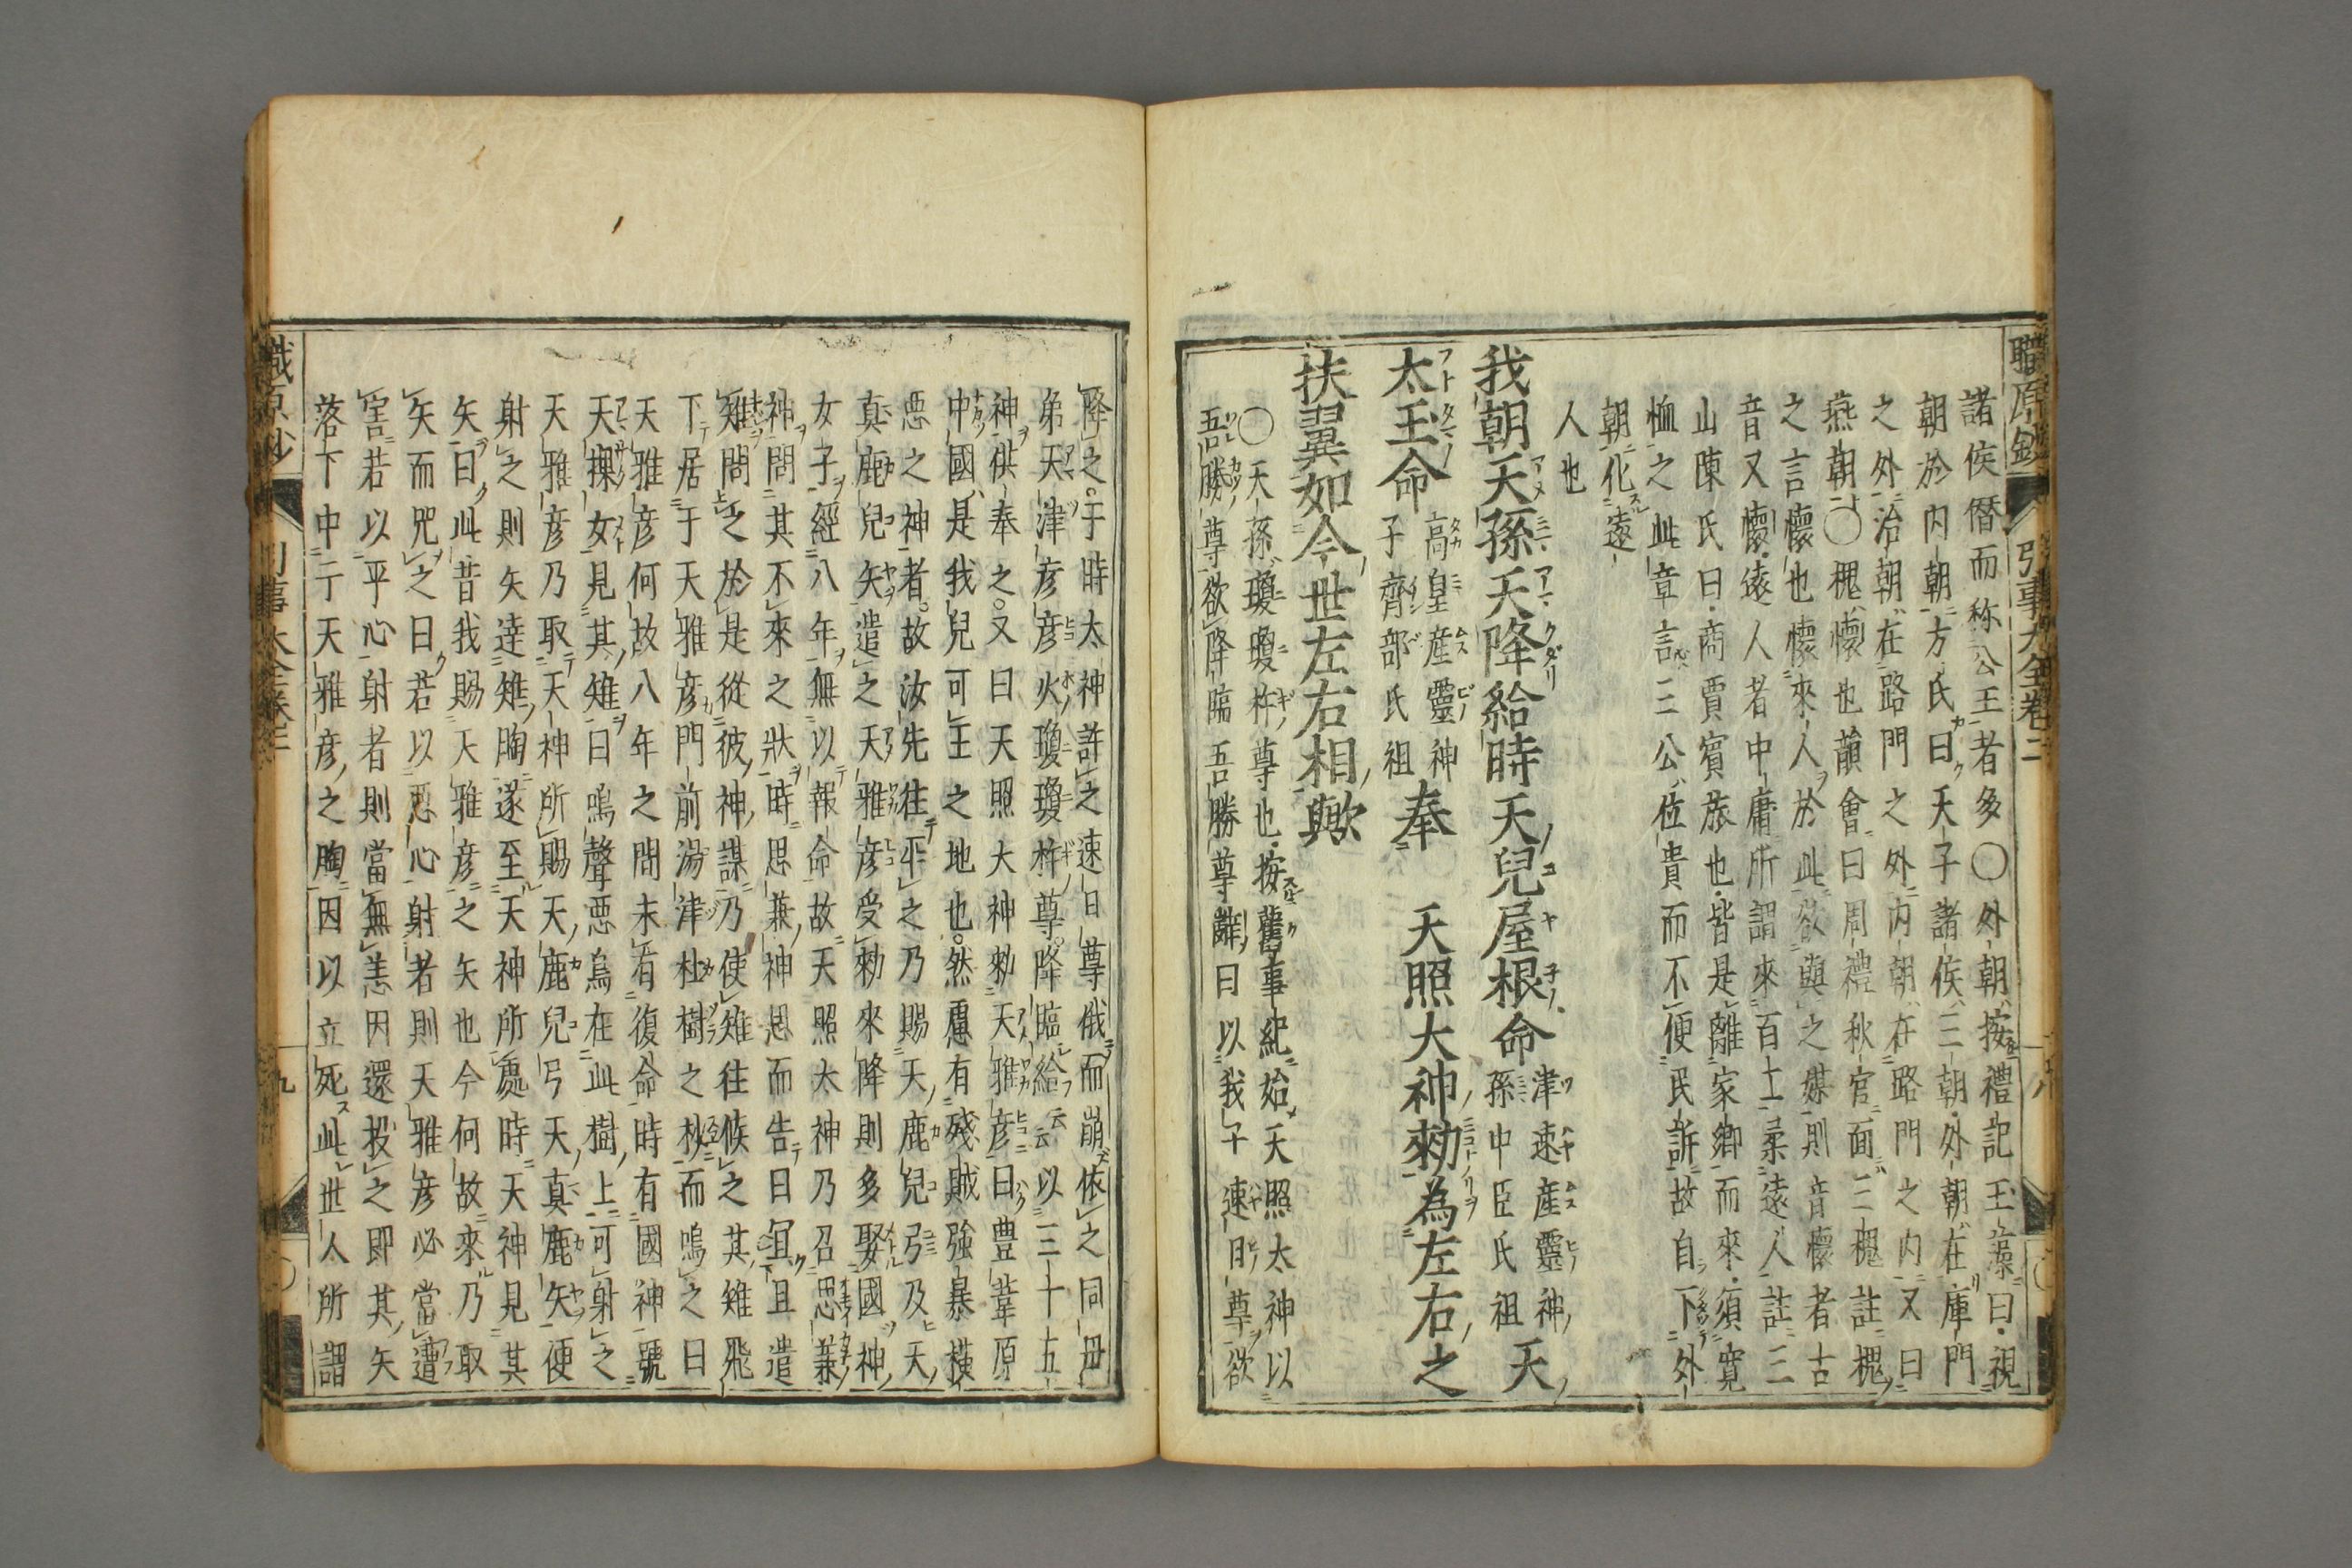 職原鈔 引事大全卷二
諸侯僭而称公王者多〇外朝按禮記玉藻曰視
朝於内朝方氏曰天子諸侯三朝外朝在庫門
之外治朝在路門之外内朝在路門之内又曰
燕朝〇槐懷也韻會曰周禮秋官面三槐註槐
之言懷也懷來人於此欲與之媒則音懷者古
音又懷遠人者中庸所謂來百工柔遠人註三
山陳氏曰商賈賓旅也皆是離家鄉而來須寬
恤之此章言三公位貴而不便民訴故自下外
朝化遠
人也
我朝天孫天降給時天兒屋根命津速産靈神天孫中臣氏祖天
太玉命高皇産靈神子齊部氏祖奉 天照大神勅為左右之
扶翼如今世左右相歟
〇天孫瓊瓊杵尊也按舊事紀始天照太神以
吾勝尊欲降臨吾勝尊辭曰以我子速日尊欲
降之于時太神許之速日尊俄而崩依之同毋
弟天津彦彦火瓊瓊杵尊降臨給云云以三十五
神供奉之又曰天照大神勅天雅彦曰豊葦原
中國是我兒可王之地也然慮有殘賊強暴横
悪之神者故汝先往平之乃賜天鹿兒弓及天
真鹿兒矢遣之天雅彦受勅來降則多娶國神
女子經八年無以報命故天照太神乃召思兼
神問其不來之狀時思兼神思而告曰且遣
雉問之於是從彼神謀乃使雉往候之其雉飛
下居于天雅彦門前湯津杜樹之杪而鳴之曰
天雅彦何故八年之間未有復命時有國神號
天探女見其雉曰鳴聲悪鳥在此樹上可射之
天雅彦乃取天神所賜天鹿兒弓天真鹿矢便
射之則矢達雉胸遂至天神所處時天神見其
矢曰此昔我賜天雅彦之矢也今何故來乃取
矢而咒之曰若以悪心射者則天雅彦必當遭
害若以平心射者則當無恙因還投之即其矢
落下中于天雅彦之胸因以立死此世人所謂
職原鈔 引事大全卷二 九